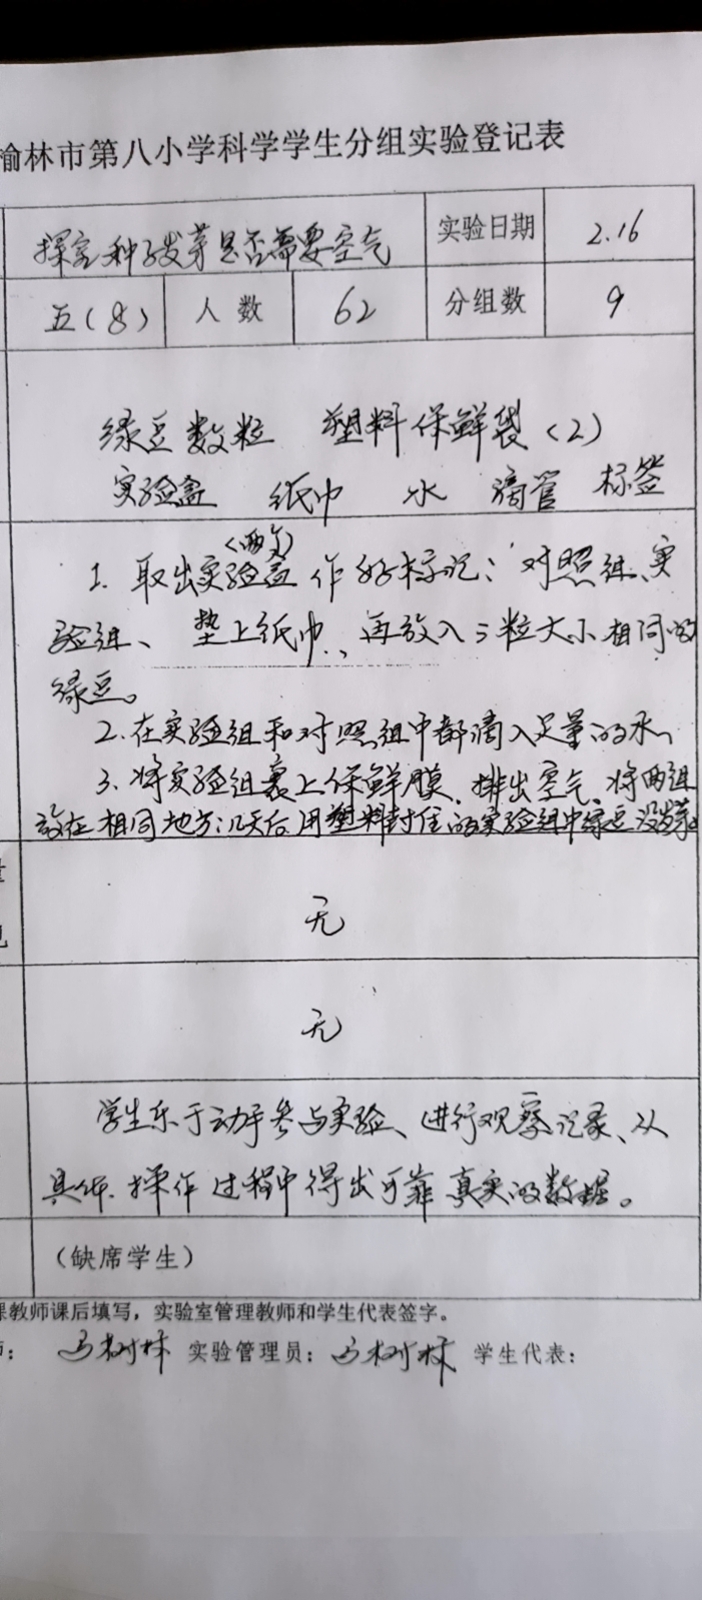 榆林市第八小学科学学生分组实验登记表
探究种子发芽是否需要空气 实验日期 2.16
五(8) 人数 62 分组数 9
绿豆数粒 塑料保鲜袋(2)
实验盒 纸巾 水 滴管 标签
(两个)
1. 取出实验盒作好标记:对照组、实
验组、垫上纸巾、再放入3粒大小相同的
绿豆。
2.在实验组和对照组中都滴入足量的水、
3.将实验组裹上保鲜膜.排出空气、将两组
放在相同地方:几天后用塑料封住的实验组中绿豆没发芽。
无
无
学生乐于动手参与实验、进行观察记录、从
具体.操作过程中得出可靠真实的数据。
(缺席学生)
课教师课后填写,实验室管理教师和学生代表签字。
师: 马树林 实验管理员: 马树林 学生代表: